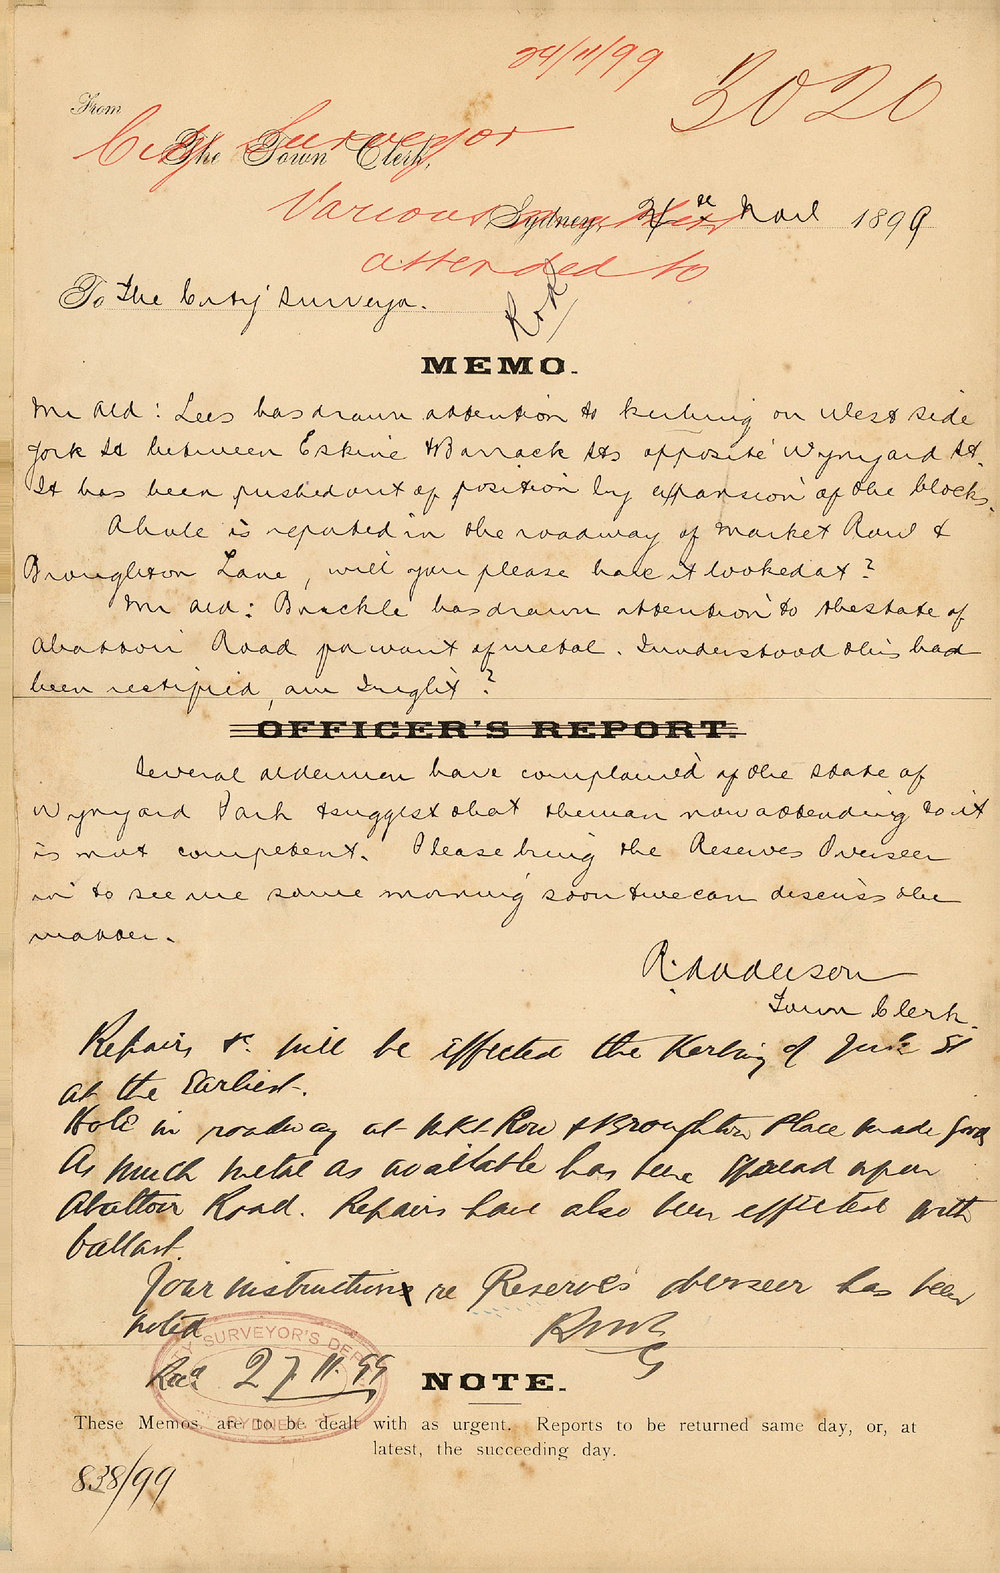 29/11/99
3020
From
City Surveyor
The Town Clerk,
Various
Sydney, 21st Nov 1899
attended to
To The City Surveyor.
MEMO.
Mr Ald: Lees has drawn attention to kerbing on West side
York St between Erskine & Barrack Sts opposite Wynyard St.
It has been pushed out of position by expansion of the blocks.
A hole is reported in the roadway of Market Row &
Broughton Lane, will you please have it looked at?
Mr Ald: Buckle has drawn attention to the state of
Abattoir Road for want of metal. I understood this had
been rectified, am I right?
OFFICER'S REPORT.
Several aldermen have complained of the state of
Wynyard Park & suggest that the man now attending to it
is not competent. Please bring the Reserves Overseer
in to see me some morning soon & we can discuss the
matter.
R. Anderson
Town Clerk.
Repairs &c. will be effected the Kerbing of York St
at the Earliest.
Hole in roadway at Mkt Row & Broughton Place made good
As much metal as available has been spread upon
Abattoir Road. Repairs have also been effected with
ballast.
Your instructions re Reserves overseer has been
noted
CITY SURVEYOR'S DEPT
Recd. 27.11.99
SYDNEY
NOTE.
These Memos. are to be dealt with as urgent. Reports to be returned same day, or, at
latest, the succeeding day.
838/99